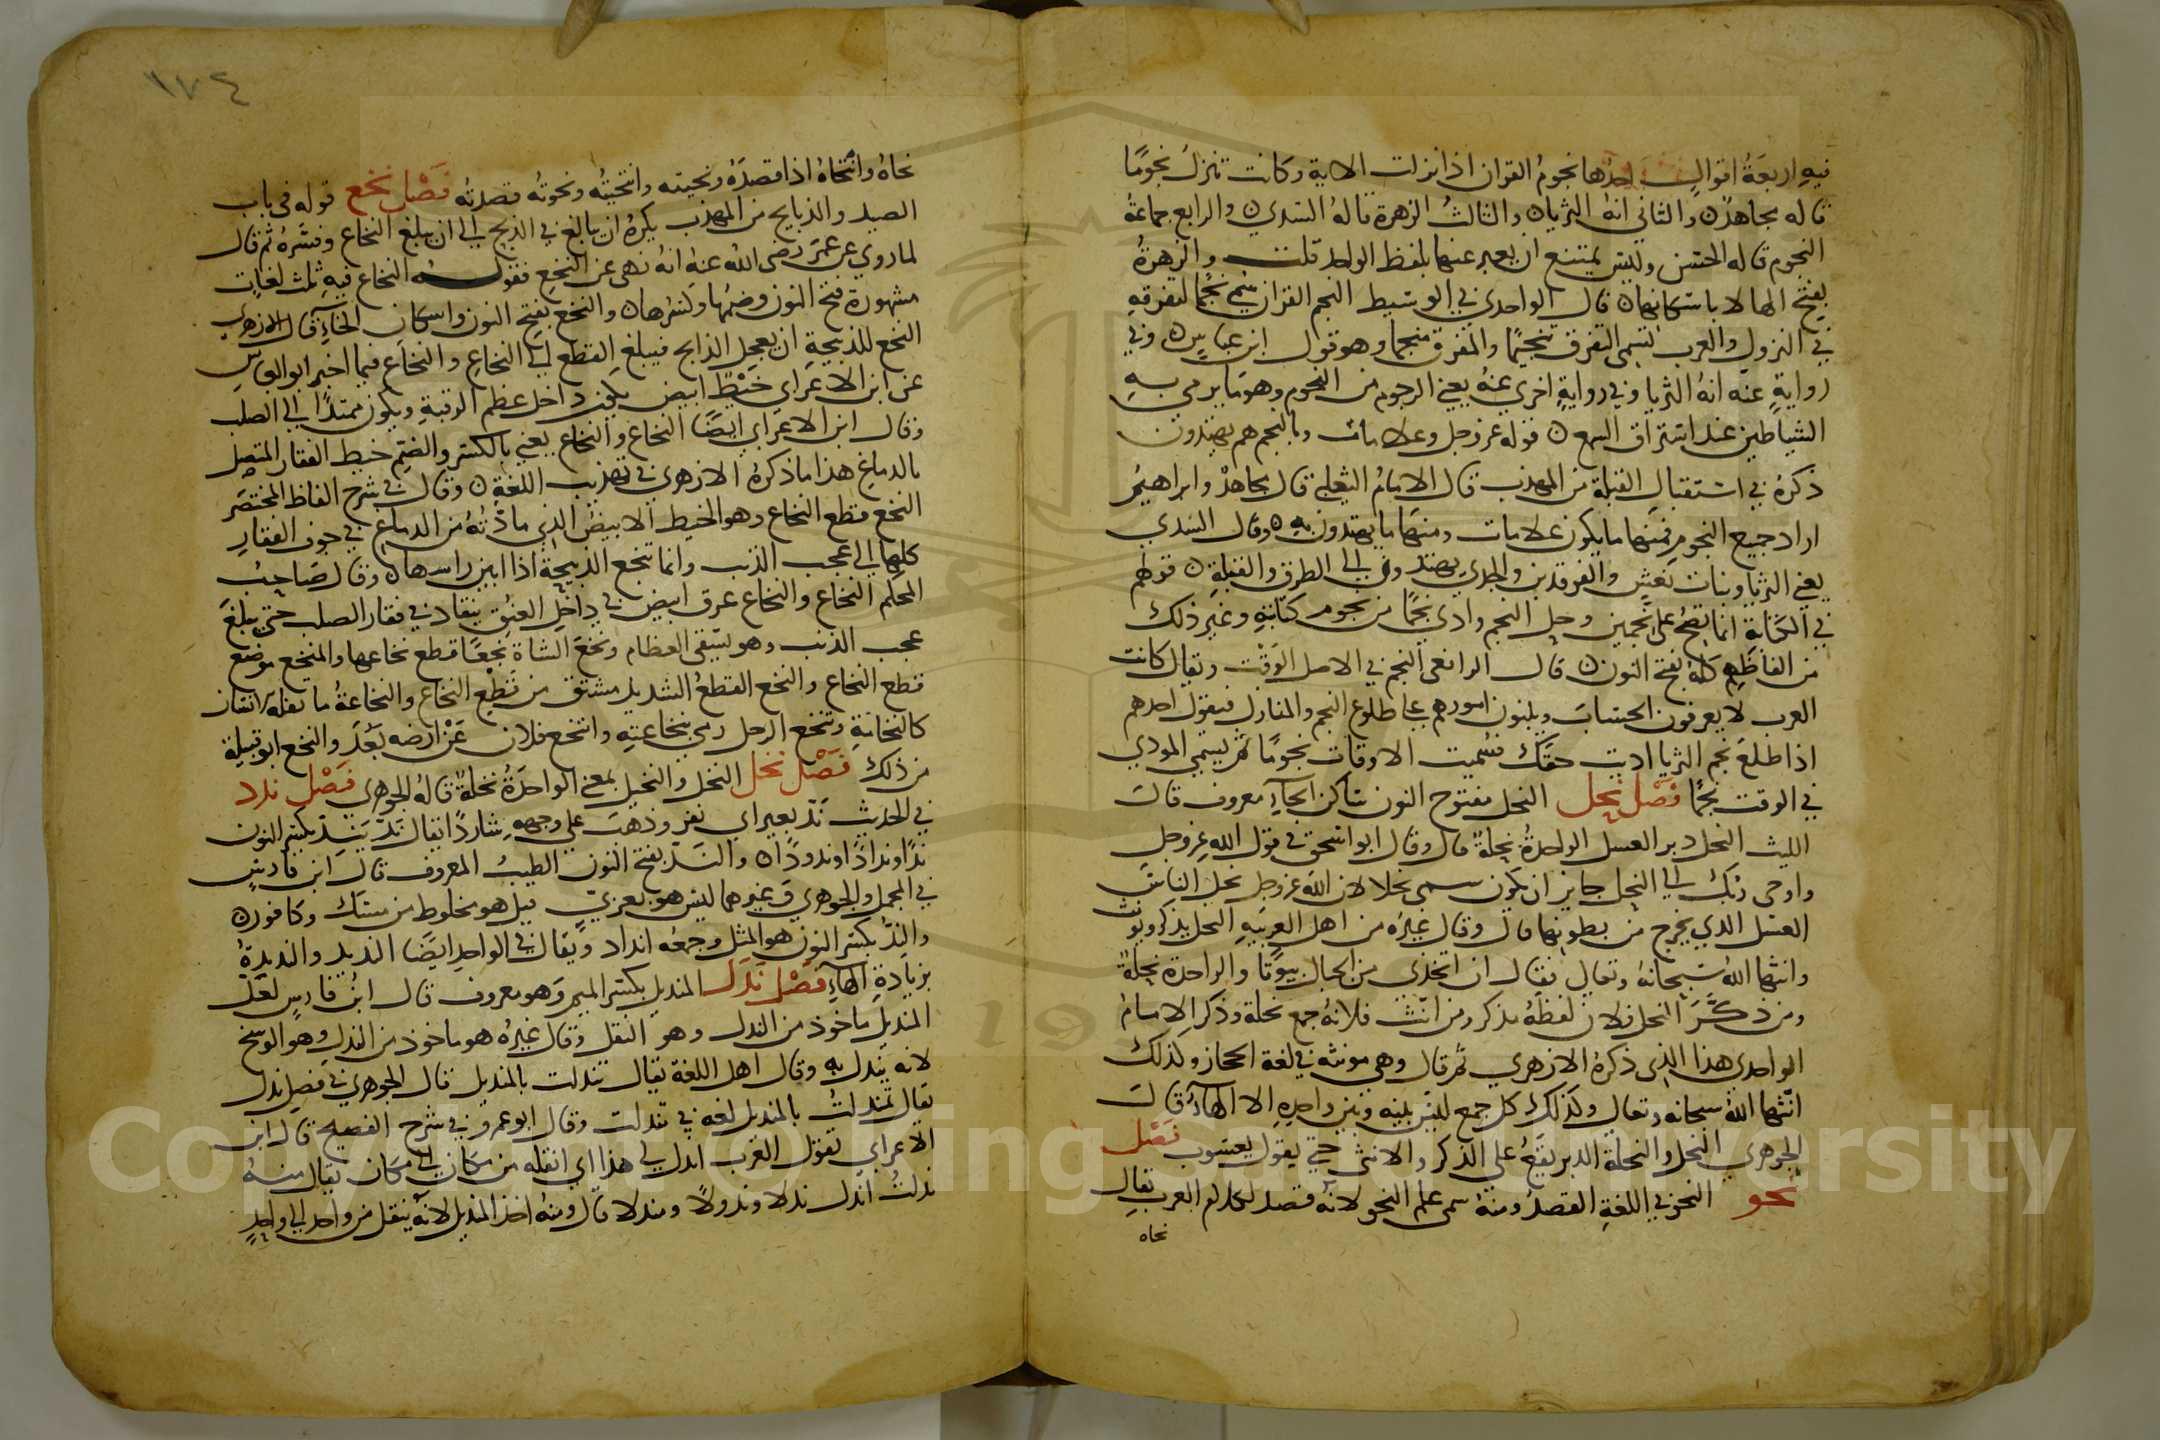 فيه اربعة اقوال احدها نجوم القران اذا نزلت الاية وكانت تنزل نجوما
قاله مجاهد والثاني انه الثريا والثالث الزهرة قاله السدي والرابع جماعة
النجوم قاله الحسن وليس يمتنع ان يعبر عنها بلفظ الواحد قلت والزهرة
بفتح الها لا باسكانها قال الواحدي في الوسيط النجم القران سمي نجما لتفرقه
في النزول والعرب تسمي التفرق تنجيما والمفرق منجما وهو قول ابن عباس وفي
رواية عنه انه الثريا وفي رواية اخري عنه يعني الرجوم من النجوم وهو ما يرمي به
الشياطين عند استراق السمع قوله عز وجل وعلامات وبالنجم هم يهتدون
ذكره في استقبال القبلة من المهذب قال الامام الثعلبي قال مجاهد وابراهيم
اراد جميع النجوم فمنها ما يكون علامات ومنها ما يهتدون به وقال السدي
يعني الثريا وبنات نعش والفرقدين والجدي يهتدون الى الطرق والقبلة قولهم
في الكتابة انما تصح على نجمين وحل النجم وادي نجما من نجوم كتابته وغير ذلك
من الفاظه كله بفتح النون قال الرافعي النجم في الاصل الوقت ويقال كانت
العرب لا يعرفون الحساب ويبنون امورهم على طلوع النجم والمنازل فيقول احدهم
اذا طلع نجم الثريا اديت حقك فسميت الاوقات نجوما ثم يسمي المودي
في الوقت نجما فصل نحل النحل مفتوح النون ساكن الحاء معروف قال
الليث النحل دبر العسل الواحدة نحلة قال وقال ابو اسحق في قول الله عز وجل
واوحى ربك الى النحل جايز ان يكون سمى نحلا لان الله عز وجل نحل الناس
العسل الذي يخرج من بطونها قال وقال غيره من اهل العربية النحل يذكر ويونث
وانثها الله سبحانه وتعالى فقال ان اتخذي من الجبال بيوتا والواحدة نحلة
ومن ذكر النحل فلان لفظه مذكر ومن انث فلانه جمع نحلة وذكر الامام
الواحدي هذا الذي ذكره الازهري ثم قال وهي مونثه في لغة الحجاز ولذلك
انثها الله سبحانه وتعالى وكذلك كل جمع ليس بينه وبين واحده الا الهاء قال
الجوهري النحل والنحلة الدبر يقع على الذكر والانثى حتى يقول يعسوب فصل
نحو النحو في اللغة القصد ومنه سمى علم النحو لانه قصد لكلام العرب يقال
نحاه
١٧٤
نحاه وانتحاه اذا قصده ونحيته وانتحيته ونحوته قصدته فصل نخع قوله في باب
الصيد والذبايح من المهذب يكره ان يبالغ في الذبح الى ان يبلغ النخاع وفسره ثم قال
لما روي عن عمر رضى الله عنه انه نهى عن النخع فقوله النخاع فيه ثلث لغات
مشهورة فتح النون وضمها وكسرها والنخع بفتح النون واسكان الخاء قال الازهري
النخع للذبيحة ان يعجل الذابح فيبلغ القطع الى النخاع والنخاع فيما اخبر ابو العباس
عن ابن الاعرابي خيط ابيض يكون داخل عظم الرقبة ويكون ممتدا الى الصلب
وقال ابن الاعرابي ايضا النخاع والنخاع يعني بالكسر والضم خيط الفقار المتصل
بالدماغ هذا ما ذكره الازهري في تهذيب اللغة وقال في شرح الفاظ المختصر
النخع قطع النخاع وهو الخيط الابيض الذي مادته من الدماغ في جوف الفقار
كلها الى عجب الذنب وانما تنخع الذبيحة اذا ابين راسها وقال صاحب
المحكم النخاع والنخاع عرق ابيض في داخل العنق ينقاد في فقار الصلب حتى يبلغ
عجب الذنب وهو يسقي العظام ونخع الشاة نخعا قطع نخاعها والمنخع موضع
قطع النخاع والنخع القطع الشديد مشتق من قطع النخاع والنخاعة ما تفله الانسان
كالنخامة وتنخع الرجل رمى بنخاعته وانتخع فلان عن ارضه بعد والنخع ابو قبيلة
من ذلك فصل نخل النخل والنخيل بمعنى الواحدة نخلة قاله الجوهري فصل ندد
في الحديث ند بعير اي نفر وذهب على وجهه شاردا يقال ند يند بكسر النون
ندا وندادا وندودا والند بفتح النون الطيب المعروف قال ابن فارس
في المجمل والجوهري وغيرهما ليس هو بعربي قيل هو مخلوط من مسك وكافور
والند بكسر النون هو المثل وجمعه انداد ويقال في الواحد ايضا النديد والنديدة
بزيادة الهاء فصل ندل المنديل بكسر الميم وهو معروف قال ابن فارس لعل
المنديل ماخوذ من الندل وهو النقل وقال غيره هو ماخوذ من الندل وهو الوسخ
لانه يندل به وقال اهل اللغة يقال تندلت بالمنديل قال الجوهري في فصل ندل
يقال تمندلت بالمنديل لغه في تندلت وقال ابو عمرو في شرح الفصيح قال ابن
الاعرابي تقول العرب اندل لي هذا اي انقله من مكان الى مكان يقال منه
ندلت اندل ندلا وندولا ومندلا قال ومنه اخذ المنديل لانه ينقل من واحد الى واحد